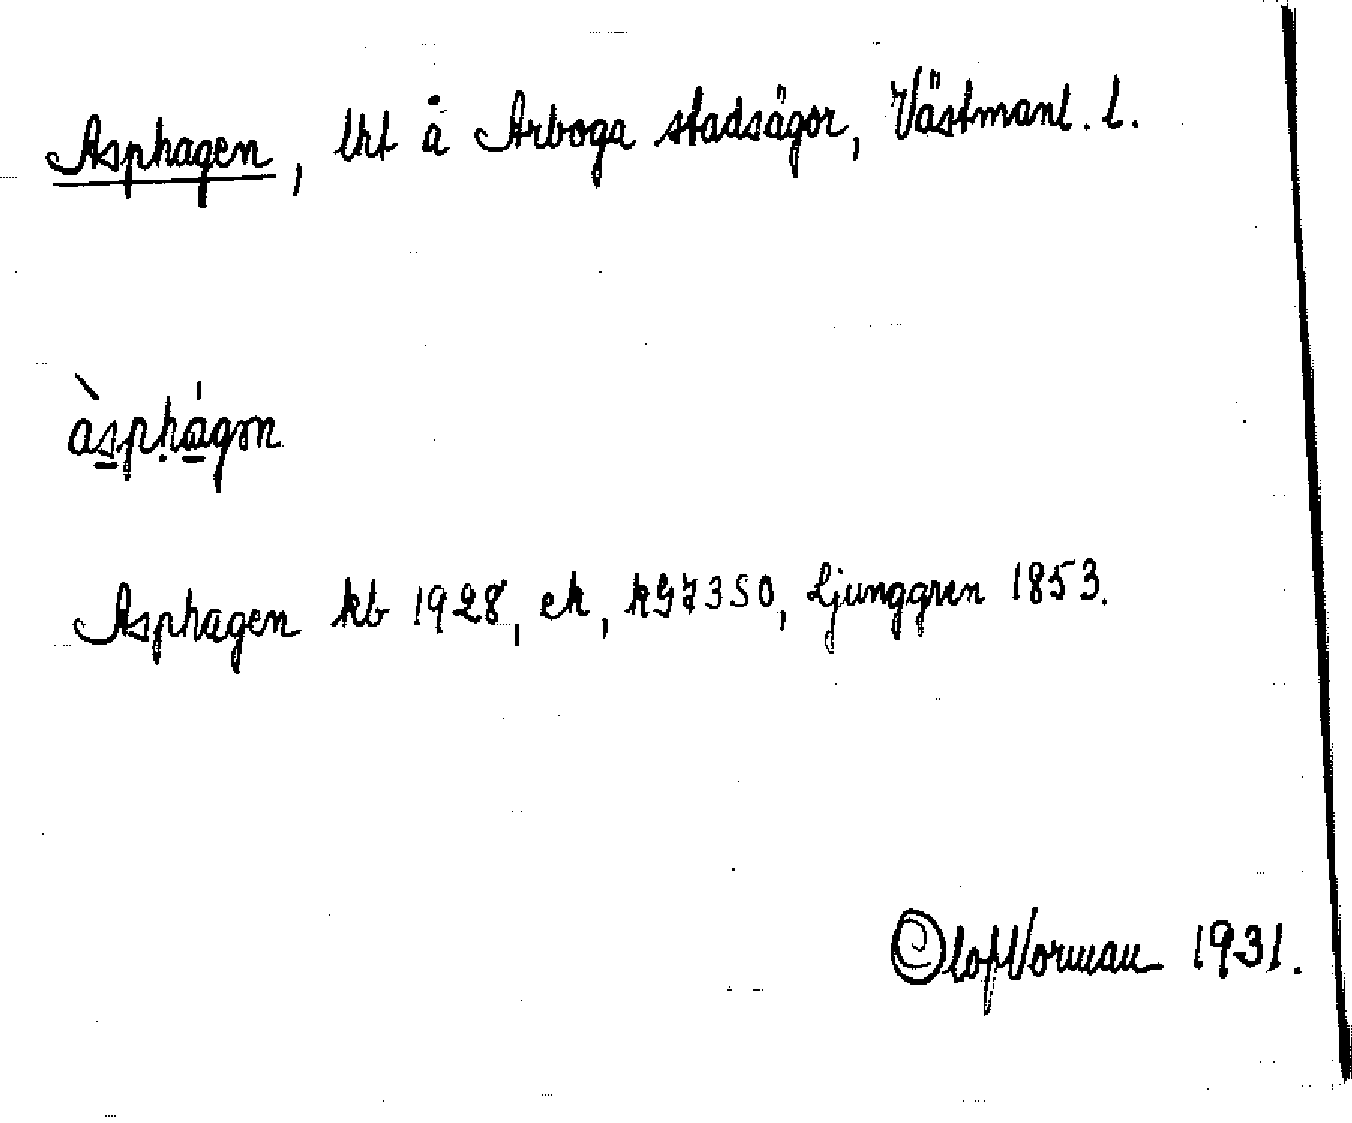 Asphagen, lht å Arboga stadsägor, Västmanl. l.
àsphágən
Asphagen kb 1928, ek, kGJ350, Ljunggren 1853.
Olof Vorman 1931.